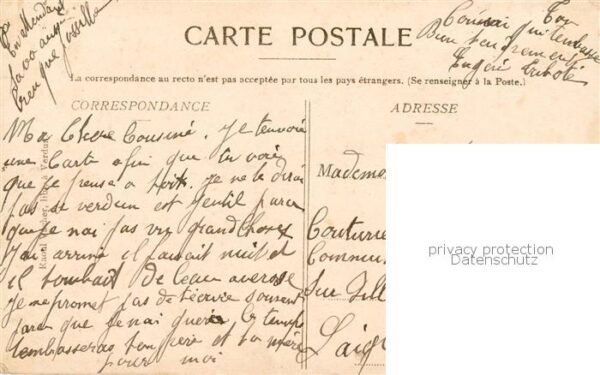 En attendant
Ton
Cousin qui t'embrasse
Bien tendrement
Eugene
CARTE POSTALE
La correspondance au recto n'est pas acceptée par tous les pays étrangers. (Se renseigner à la Poste.)
CORRESPONDANCE
ADRESSE
Ma Chere Cousine. Je tenvoie
une Carte afin que tu voie
que je pense a toit. Je ne te dirai
pas se verdun est gentil parce
que je nai pas vus grand choses
Jai arrivé il faisait nuit et
il tombait de leau averse
Je ne promet pas de técrire souvent
parce que je nai guere le temps
tembrasseras ton pere et ta mère
pour moi
Mademo
Couturie
Commu
Sur Till
Laig
privacy protection
Datenschutz